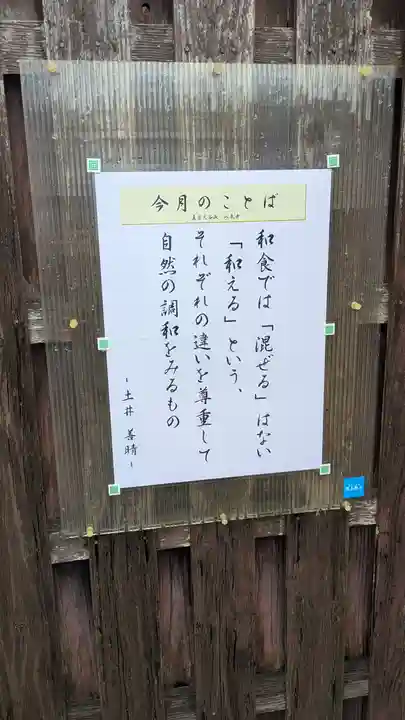 今月のことば
和食では「混ぜる」はない
「和える」という、
それぞれの違いを尊重して
自然の調和をみるもの
-土井 善晴-